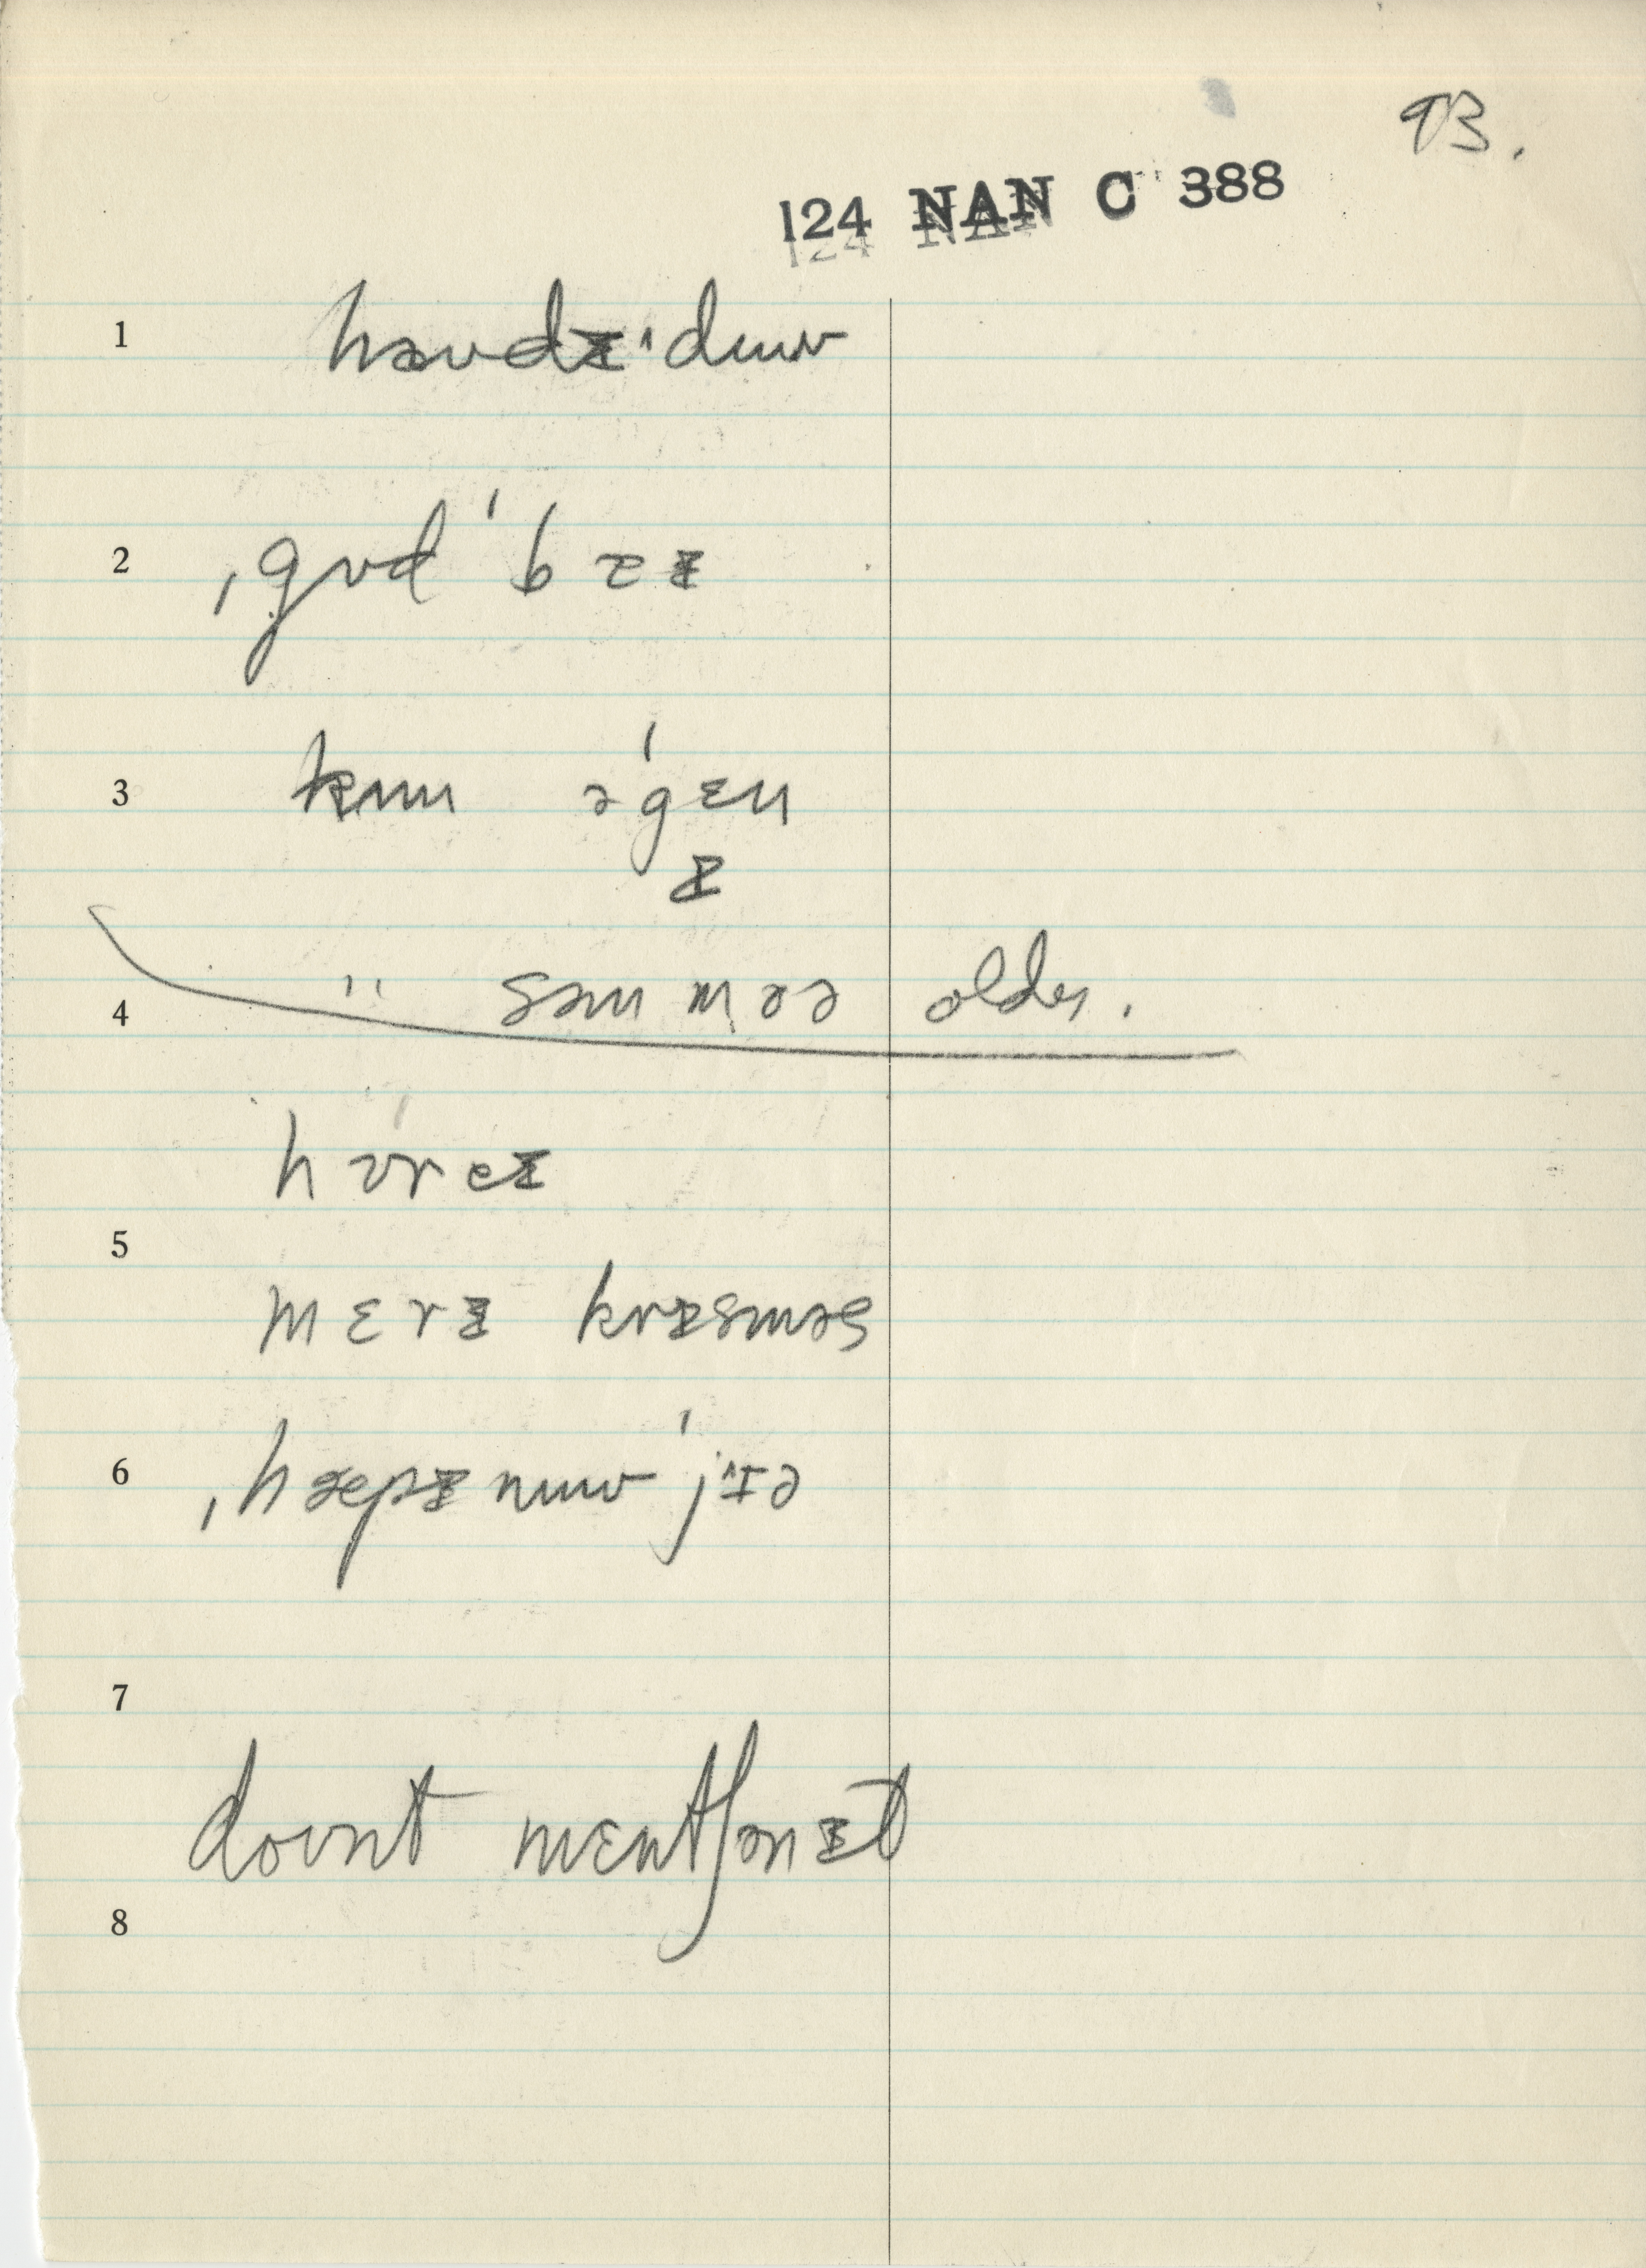 93.
124 NAN C 388
1 haʊdᵻ'duʊ
2 ˌgʊd 'b aᵻ
3 kʌm ə'gɛn
ᵻ
4 " sʌm mɔə older.
hʊ'reᵻ
5
mɛrᵻ krᵻsməs
6 ˌhæpᵻ nuʊ 'jɪə
7
doʊnt mɛntʃənᵻt
8